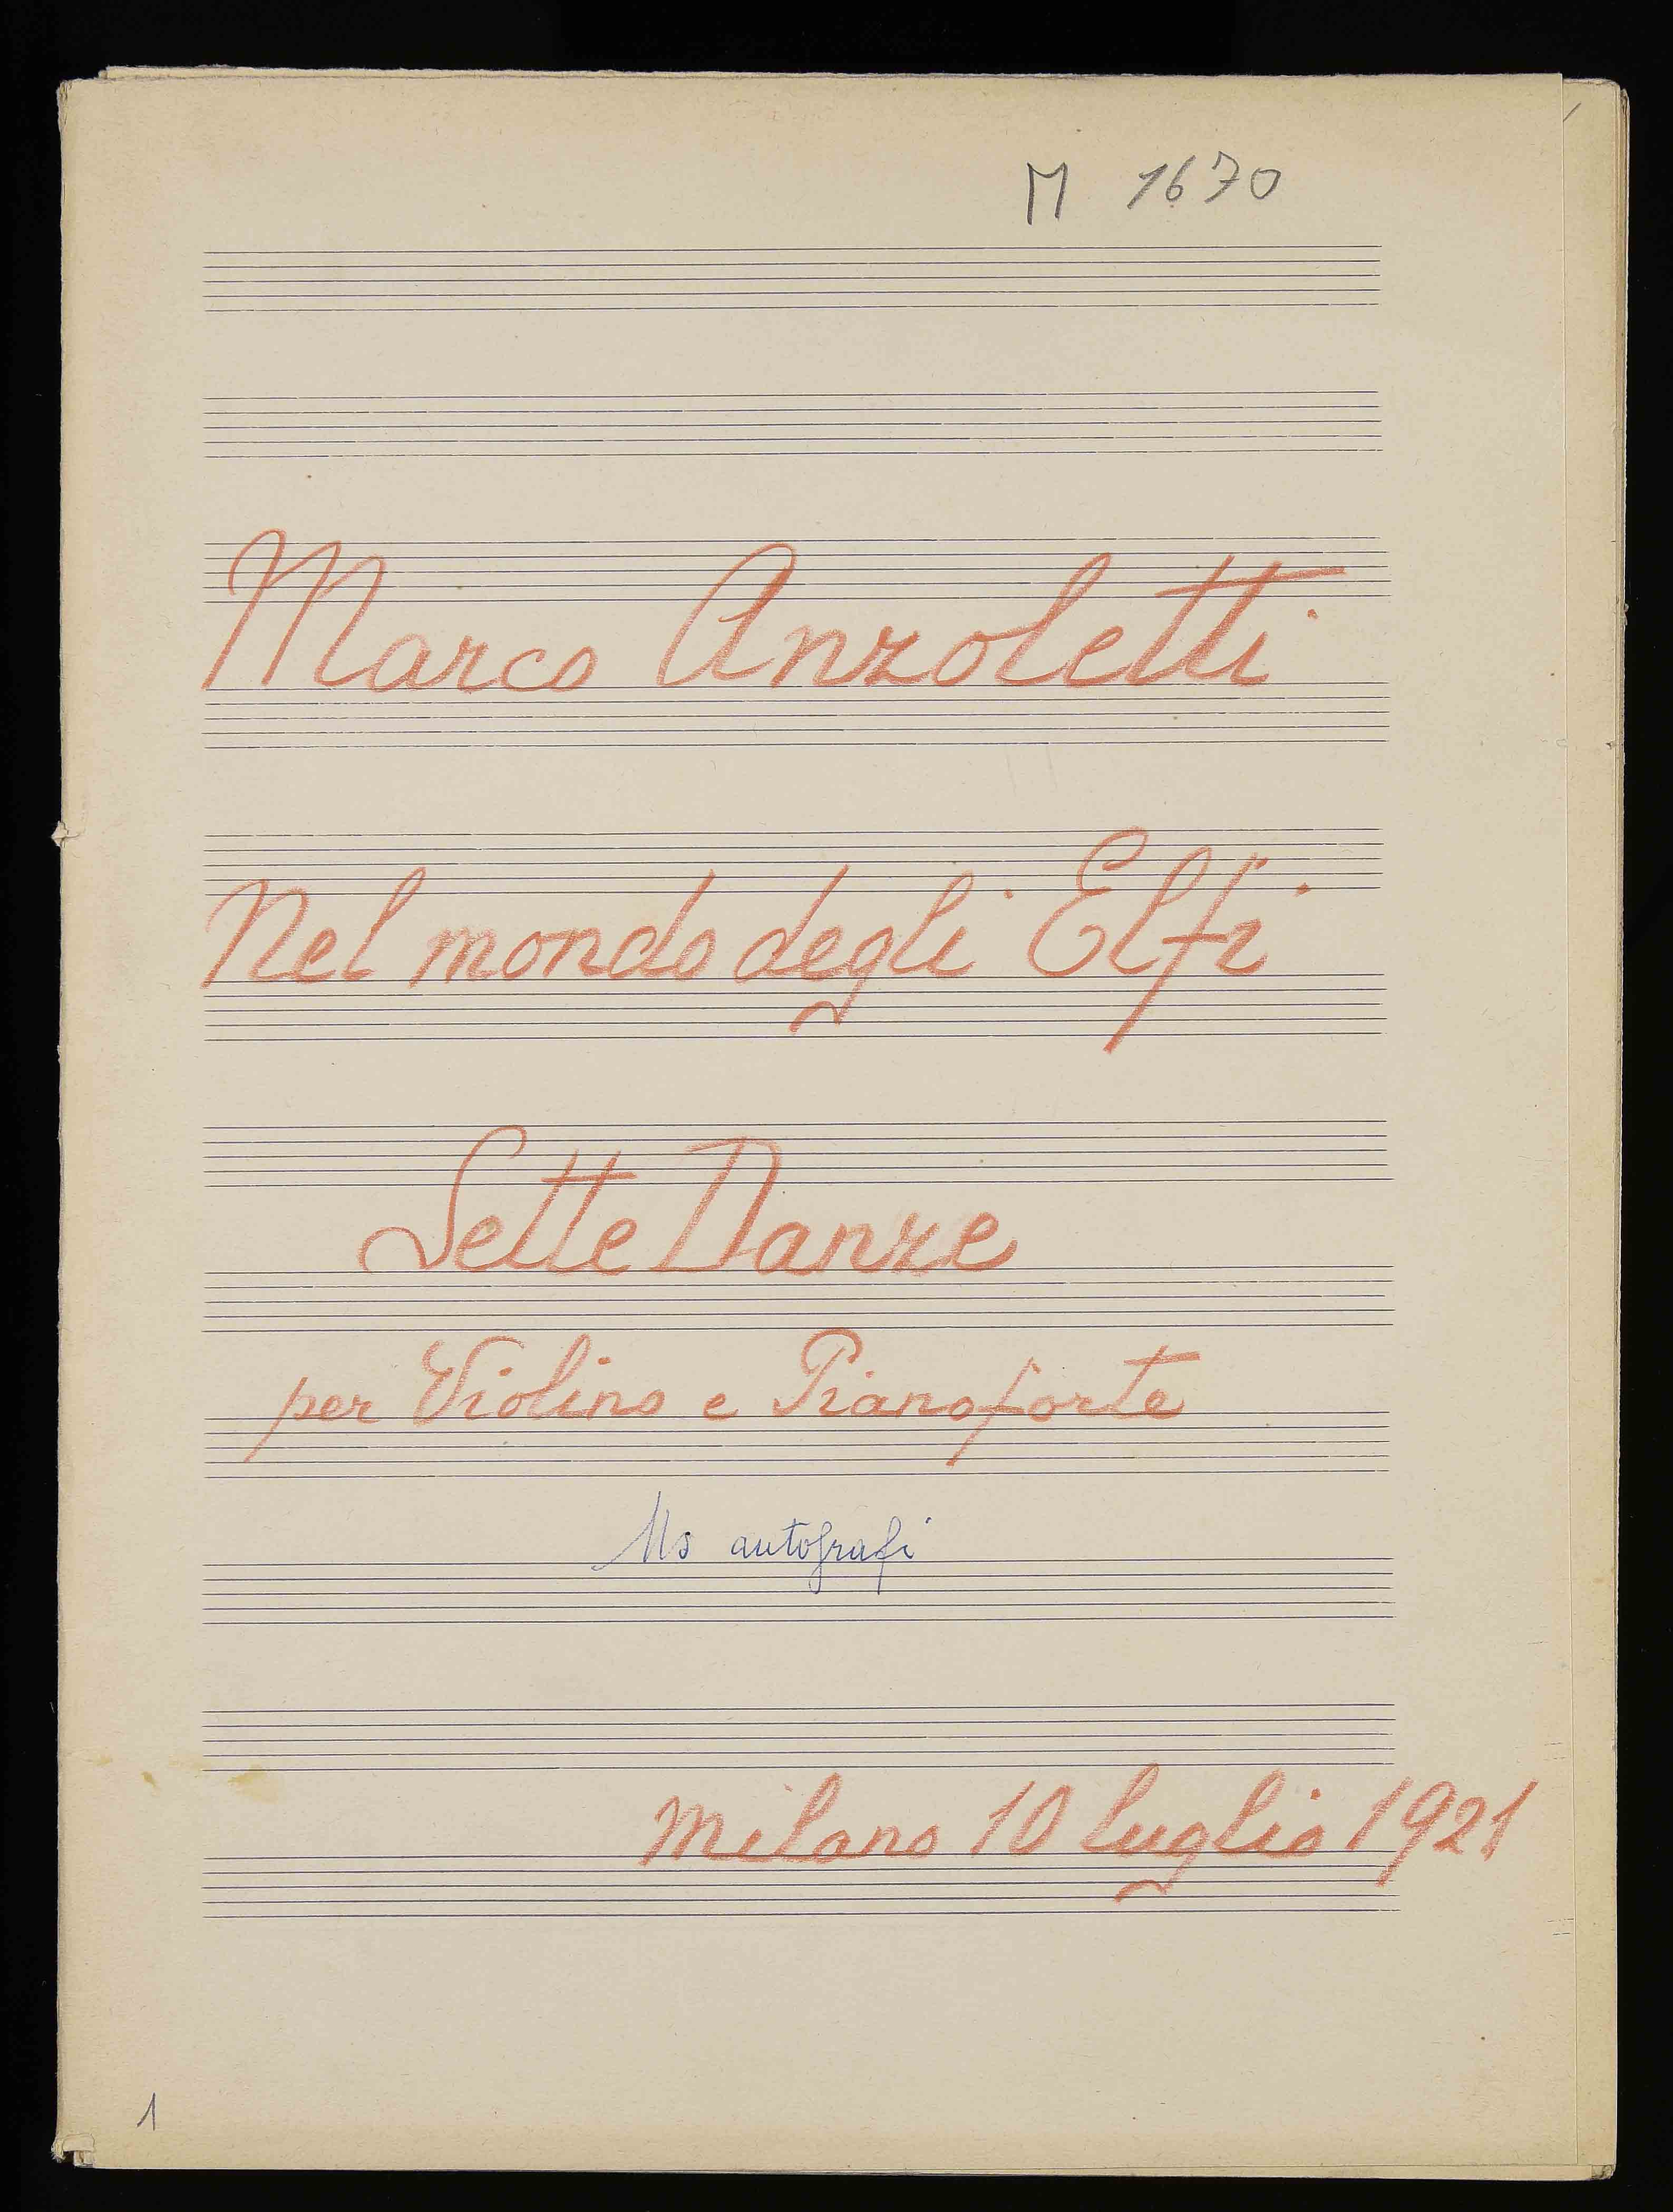 M 1670
Marco Anzoletti
Nel mondo degli Elfi
Sette Danze
per Violino e Pianoforte
Ms autografi
Milano 10 luglio 1921
1